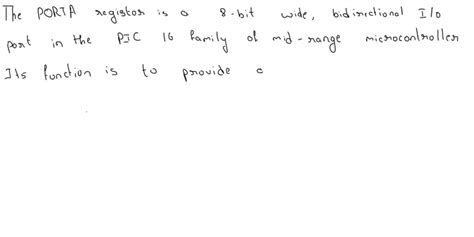 The PORTA registor is a 8-bit wide, bidirectional I/o
port in the PIC 16 family of mid-range microcontroller
Its function is to provide c